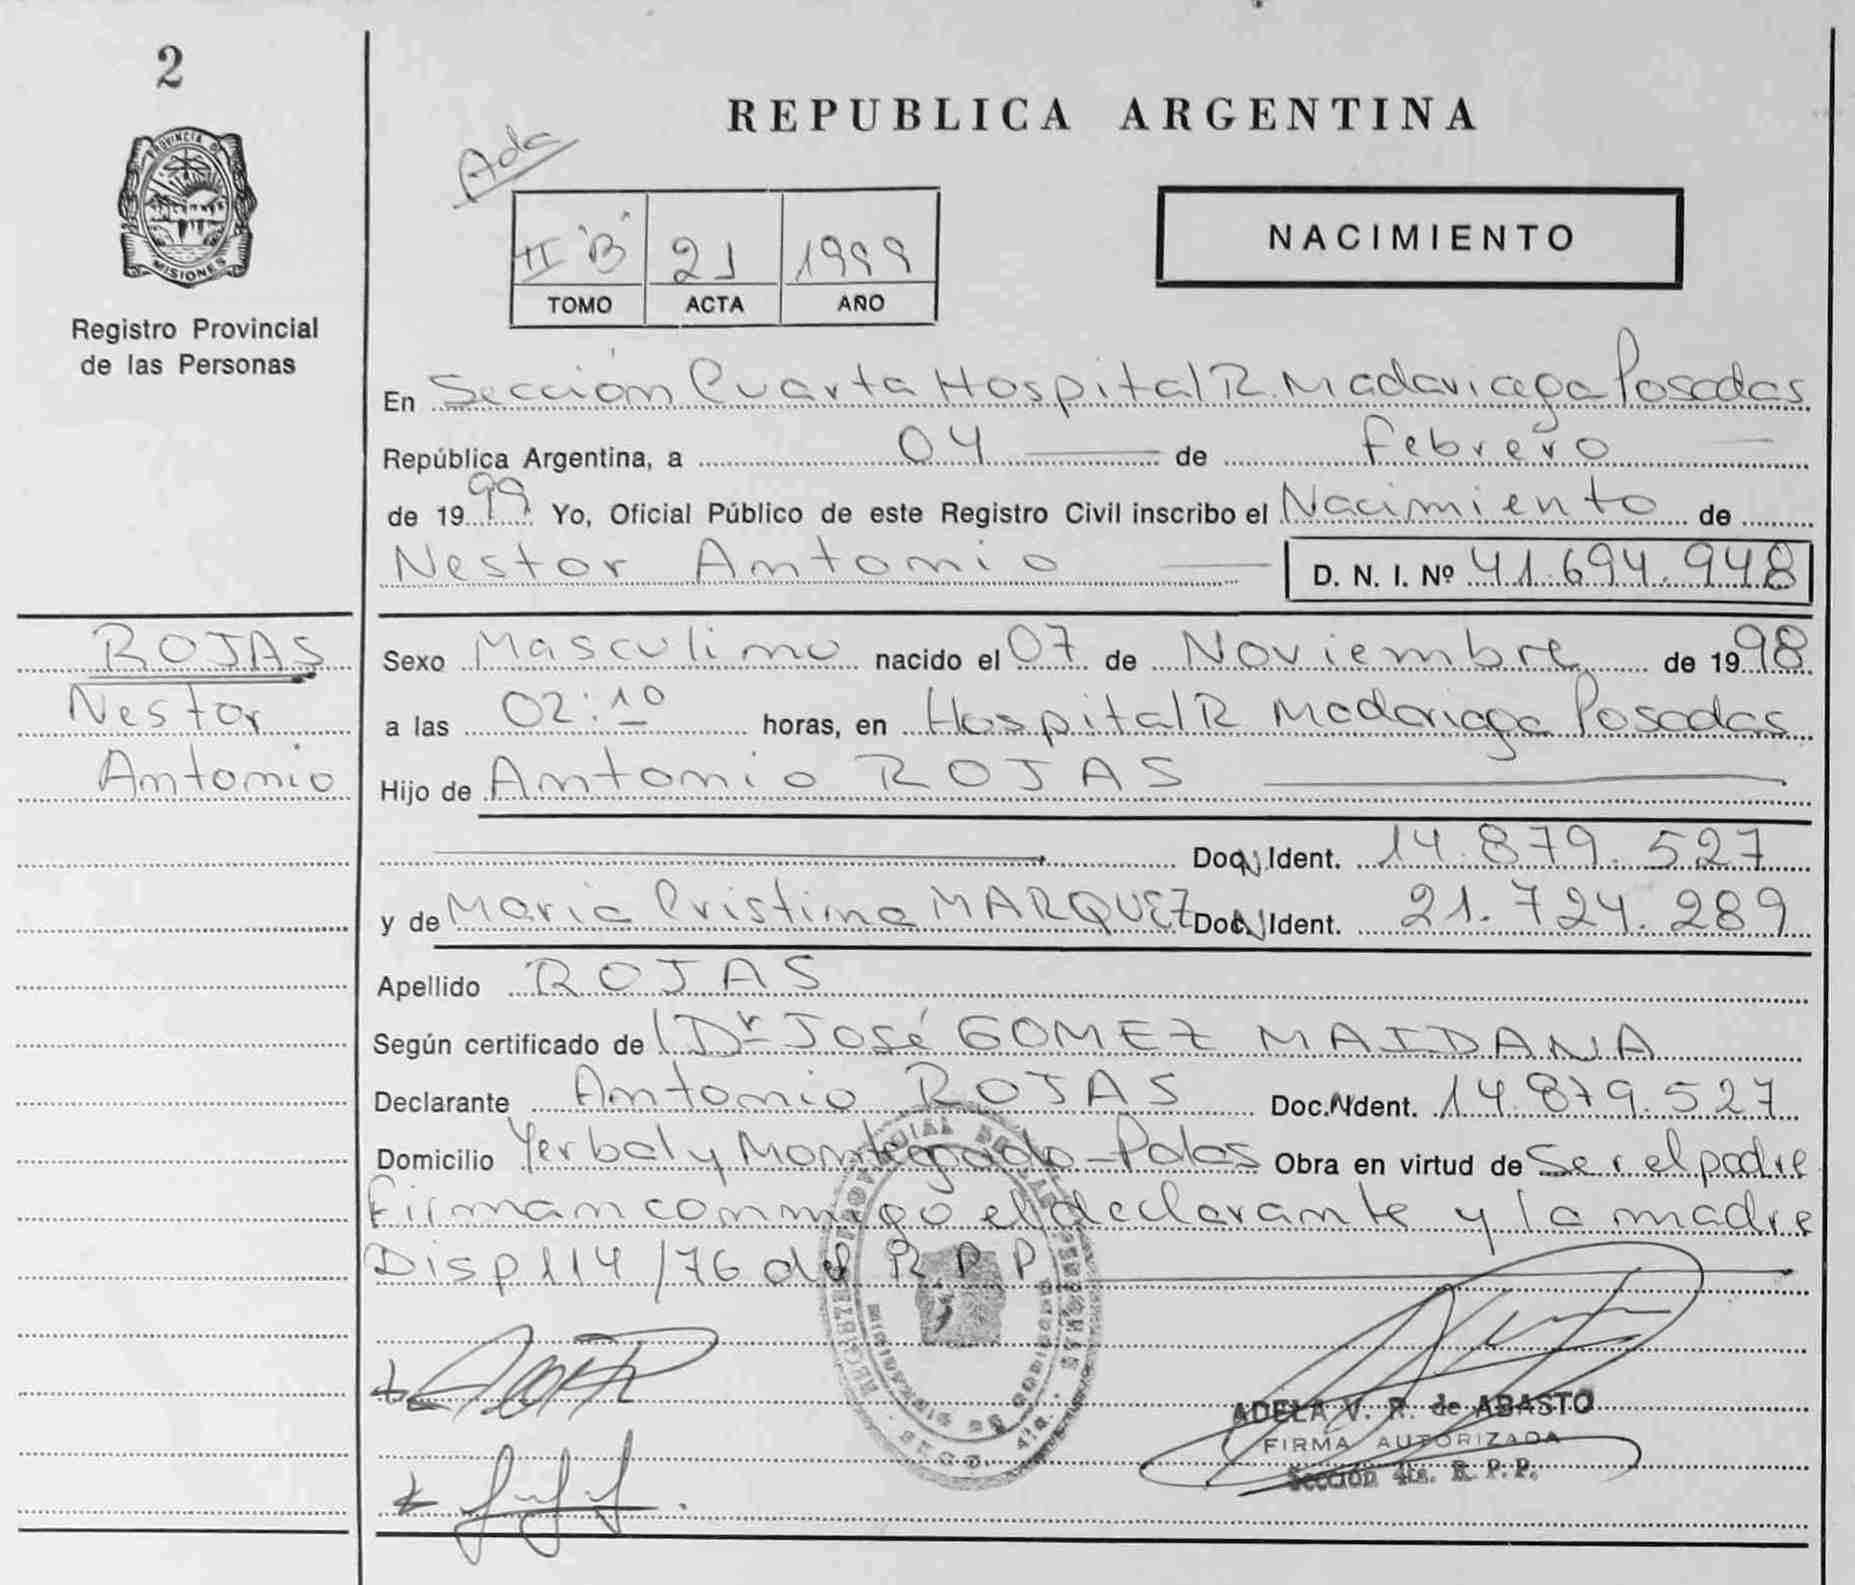 2
PROVINCIA DE
MISIONES
Registro Provincial
de las Personas
ROJAS
Nestor
Antonio
REPUBLICA ARGENTINA
Ada
II "B" 21 1999
TOMO ACTA AÑO
NACIMIENTO
En Sección Cuarta Hospital R. Madariaga Posadas
República Argentina, a 04 de Febrero
de 1999 Yo, Oficial Público de este Registro Civil inscribo el Nacimiento de
Nestor Antonio D. N. I. Nº 41.694.948
Sexo Masculino nacido el 07 de Noviembre de 1998
a las 02:10 horas, en Hospital R Madariaga Posadas
Hijo de Antonio ROJAS
Doc. Ident. 14.879.527
y de Maria Cristina MARQUEZ Doc. Ident. 21.724.289
Apellido ROJAS
Según certificado de Dr José GOMEZ MAIDANA
Declarante Antonio ROJAS Doc. Ident. 14.879.527
Domicilio Yerbal y Montegrado - Pdas Obra en virtud de Ser el padre
Firman conmigo el declarante y la madre
Disp 114/76 del R.P.P
ADELA V. R. de ABASTO
FIRMA AUTORIZADA
Sección 4ta. R. P. P.